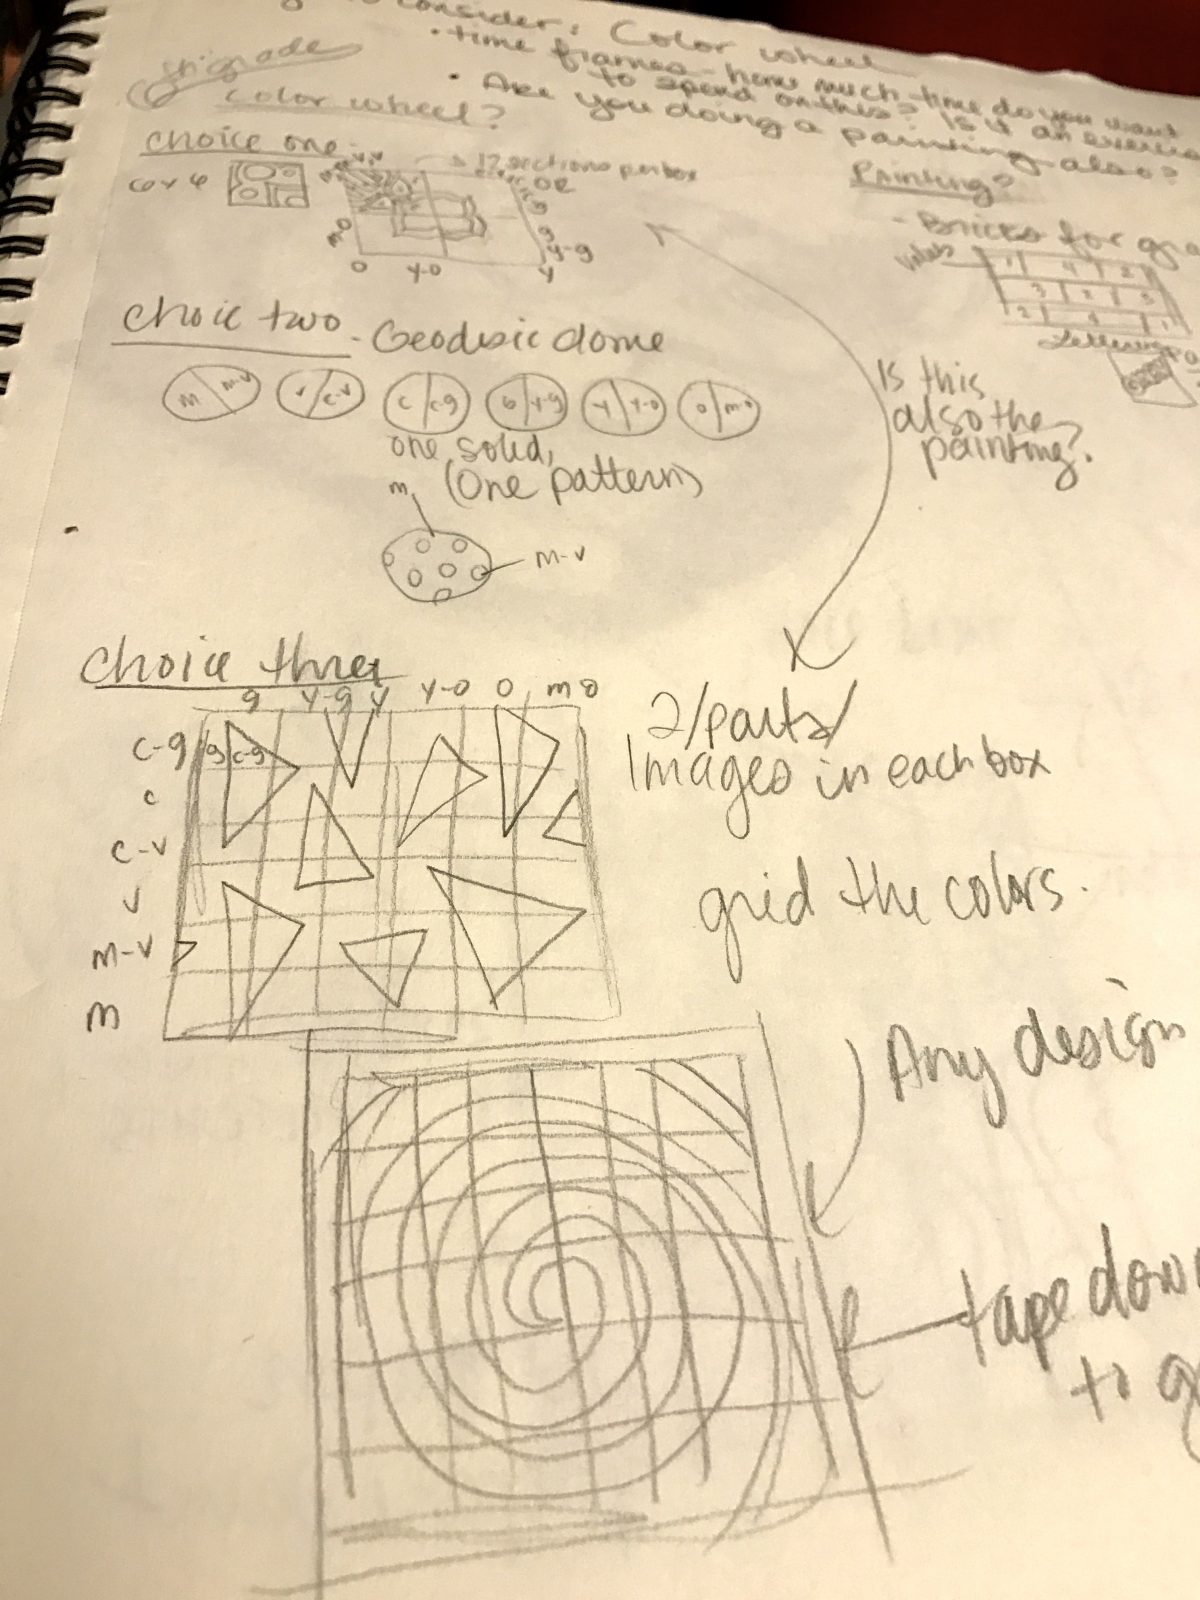 to consider: Color wheel
• time frames - how much time do you want
to spend on this? Is it an exercise
• Are you doing a painting also?
5th grade
color wheel?
choice one -
→ 12 sections per box
6 x 6
or
m-o
o
y-o
y
y-g
g
Painting?
- Bricks for gra
values
1 4 2
3 2 3
2 4 1
Choic two - Geodesic dome
m m-v
v c-v
c c-g
g y-g
y y-o
o m-o
one solid,
(One pattern)
m
m-v
Is this
also the
painting?
Choice three
g y-g y y-o o m o
c-g g c-g
c
c-v
v
m-v
m
2/parts/
Images in each box
grid the colors.
Any design
tape down
to g